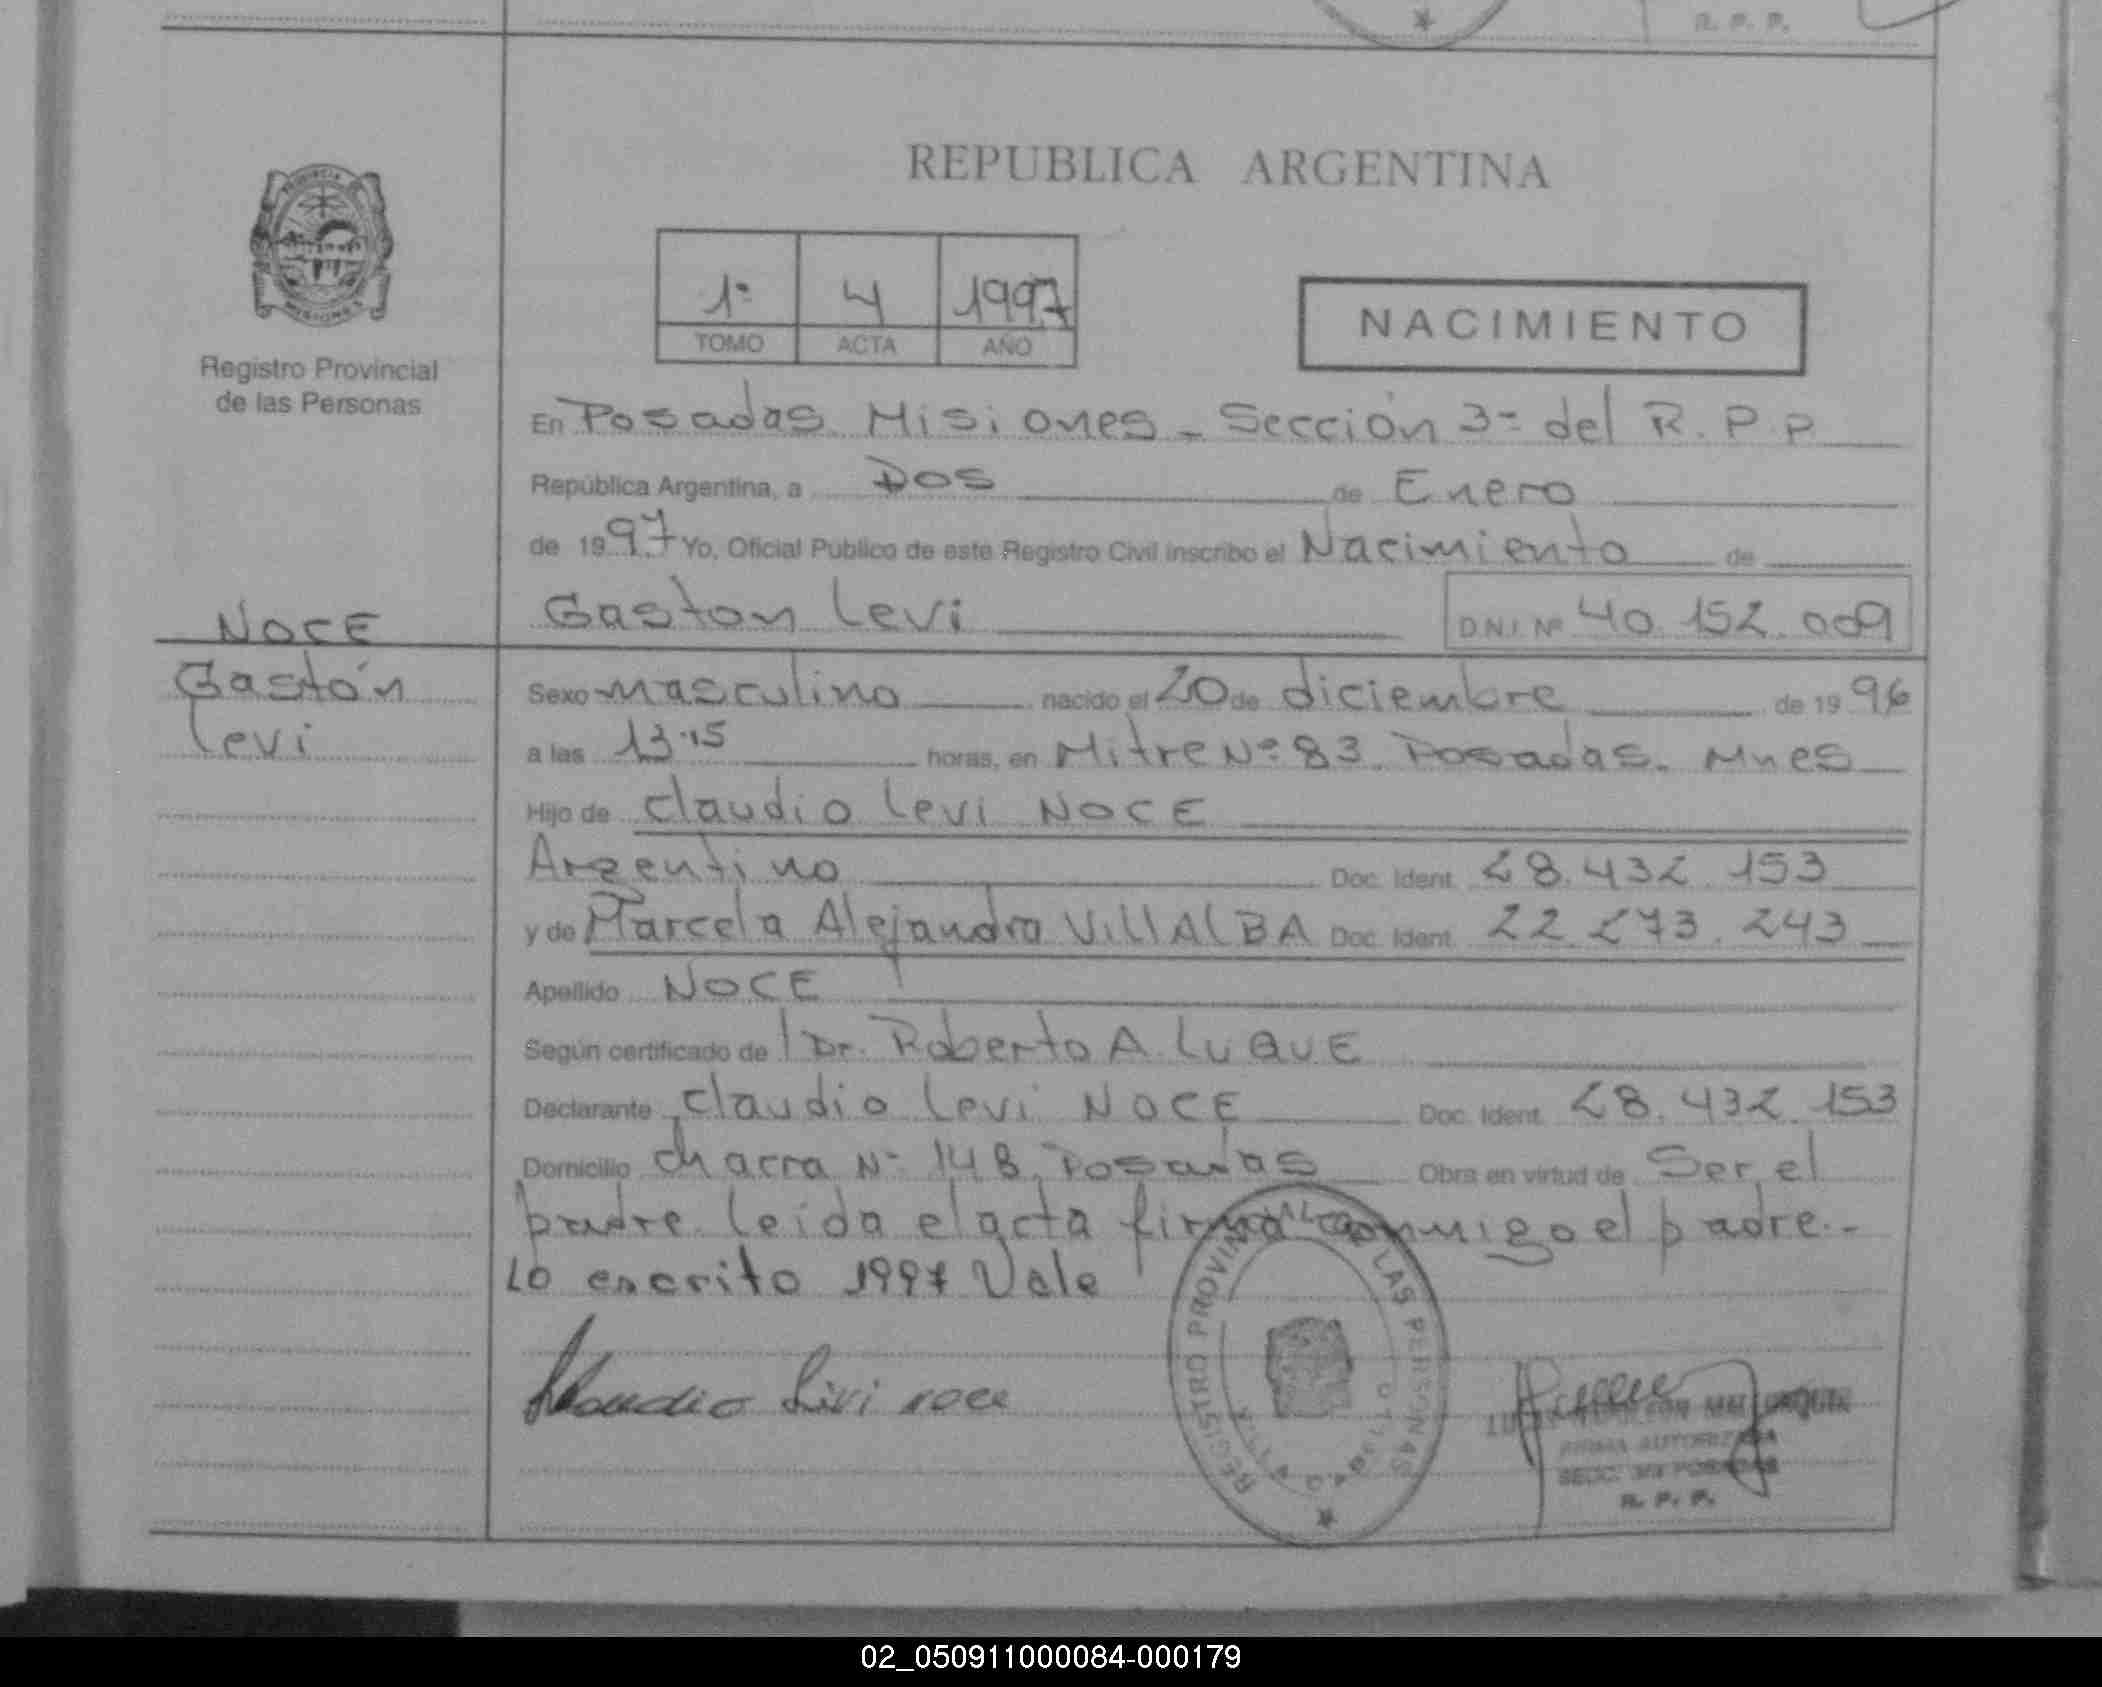 R. P. P.
REPUBLICA ARGENTINA
PROVINCIA DE
MISIONES
1º 4 1997
TOMO ACTA AÑO
NACIMIENTO
Registro Provincial
de las Personas
En Posadas Misiones - Sección 3ª del R. P. P
República Argentina, a Dos de Enero
de 1997 Yo, Oficial Público de este Registro Civil inscribo el Nacimiento de
NOCE
Gaston Levi D.N.I. Nº 40.152.009
Gastón
Levi
Sexo masculino nacido el 20 de diciembre de 1996
a las 13.15 horas, en Mitre Nº 83. Posadas. Mnes
Hijo de Claudio Levi NOCE
Argentino Doc. Ident. 28.432.153
y de Marcela Alejandra VillAlBA Doc. Ident. 22.273.243
Apellido NOCE
Según certificado de Dr. Roberto A. LUQUE
Declarante Claudio Levi NOCE Doc. Ident. 28.432.153
Domicilio Chacra Nº 148, Posadas Obra en virtud de Ser el
padre. leida el acta firma conmigo el padre.-
Lo escrito 1997 Vale
REGISTRO PROVINCIAL DE LAS PERSONAS
Claudio Livi noce
FIRMA AUTORIZADA
SECC. 3ra POSADAS
R. P. P.
02_050911000084-000179